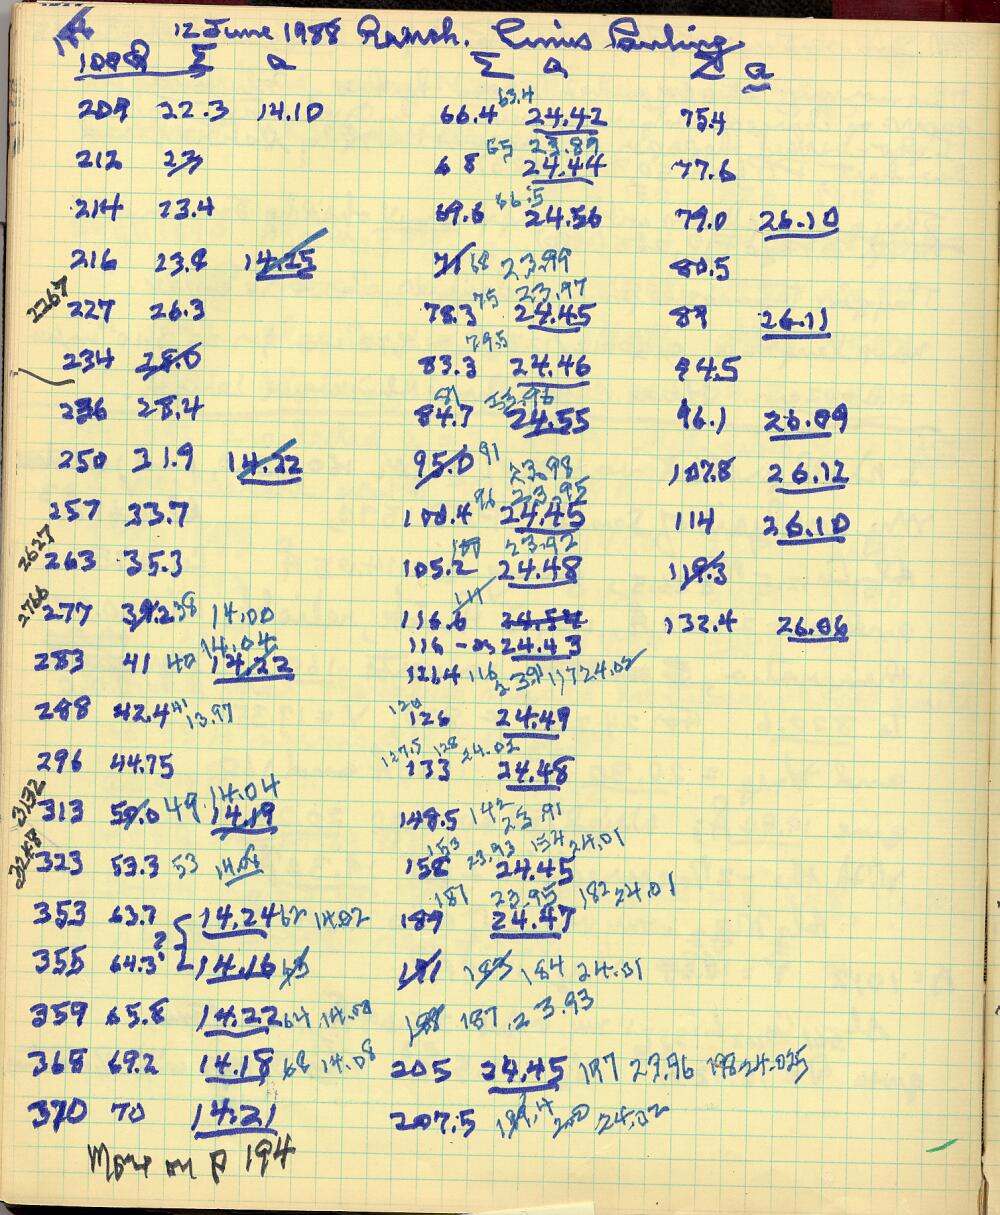 186 12 June 1988 Ranch. Linus Pauling
100Q Σ a Σ a Σ a
209 22.3 14.10 66.4 63.4 24.42 75.4
65 23.89
212 23 68 24.44 77.6
214 23.4 69.6 66.5 24.56 79.0 26.10
216 23.8 14.25 71 68 23.99 80.5
75 23.97
2267 227 26.3 78.3 24.45 89 26.11
79.5
234 28.0 83.3 24.46 94.5
81 23.96
236 28.4 84.7 24.55 96.1 26.09
250 31.9 14.22 95.0 91 23.98 107.8 26.12
96 23.95
257 33.7 100.4 24.45 114 26.10
100 23.92
2627 263 35.3 105.2 24.48 119.3
111
2766 277 39.2 38 14.00 116.6 24.54 132.4 26.06
14.04 116 - as 24.43
283 41 40 14.22 121.4 116 23.91 117 24.02
288 42.4 41 13.97 120 126 24.49
127.5 128 24.02
296 44.75 133 24.48
3132 313 50.0 49 14.04 14.19 148.5 142 23.91
153 23.93 154 24.01
3248 323 53.3 53 158 24.45
181 23.95 182 24.01
353 63.7 14.24 62 14.02 189 24.47
?
355 64.3 14.16 63 191 183 184 24.01
359 65.8 14.22 64 14.00 198 187 23.93
368 69.2 14.18 68 14.08 205 24.45 197 23.96 198 24.025
370 70 14.21 207.5 199.4 200 24.02
More on p 194